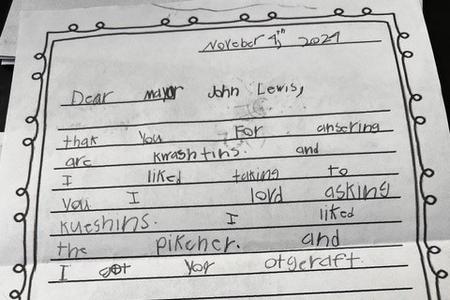 Noveber 4th 2021
Dear mayor John Lewis,
thak You For ansering
are kwashtins. and
I liked taking to
you I lord asking
kueshins. I liked
the pikcher. and
I got yor otgeraft.